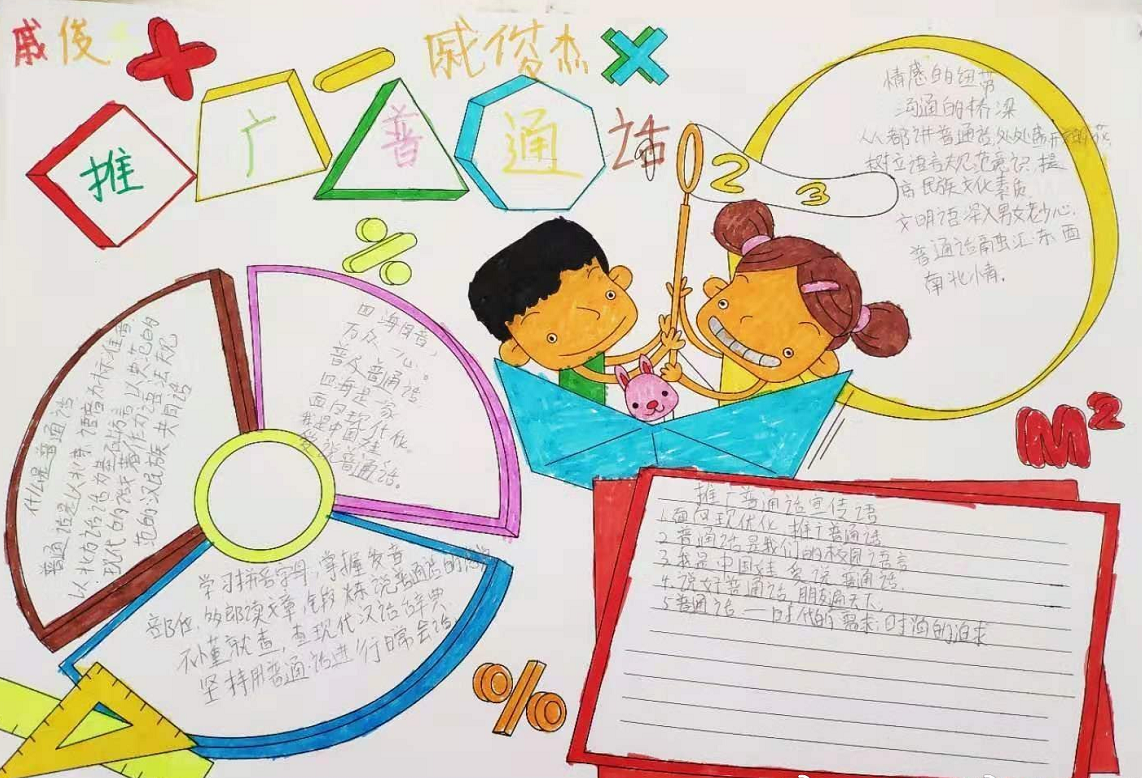 戚俊
戚俊杰
推广普通话
2 3
情感的纽带
沟通的桥梁
人人都讲普通话,处处盛开的花
树立语言规范意识,提
高民族文化素质
文明语深入男女老少心.
普通话融汇东西
南北情.
四海同音,
万众一心。
普及普通话
四海是一家
面向现代化
我是中国娃
爱说普通话。
什么是普通话
普通话是以北京语音为标准音
以北方话为基础方言,以典范的
现代白话文著作为语法规
范的汉民族共同语
学习拼音字母,掌握发音
部位,多朗读文章,锻炼说普通话的
不懂就查,查现代汉语辞典.
坚持用普通话进行日常会话
M²
推广普通话宣传语
1.面向现代化,推广普通话
2.普通话是我们的校园语言
3.我是中国娃 爱说普通话.
4.说好普通话 朋友遍天下.
5普通话——时代的需求:时尚的追求